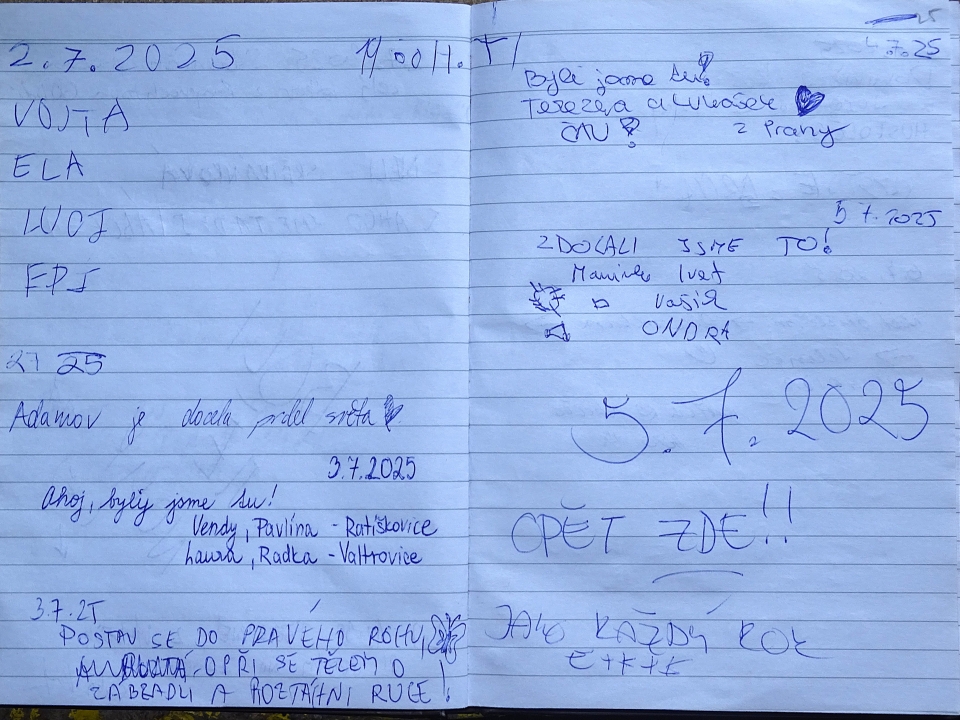 2.7.2025
VOJTA
ELA
27 25
Adamov je docela prdel světa
3.7.2025
Ahoj, byly jsme tu!
Vendy, Pavlína - Ratiškovice
Laura, Radka - Valtrovice
3.7.25
POSTAV SE DO PRAVÉHO ROHU,
OPŘI SE TĚLEM O
ZÁBRADLI A ROZTÁHNI RUCE!
4.7.25
Byli jsme tu!
Terezka a Lukášek
ČAU z Prahy
5 7. 2025
ZDOLALI JSME TO!
Ivet
Vašík
ONDRA
5.7.2025
OPĚT ZDE!!
JAKO KAŽDÝ ROK
E+K+K